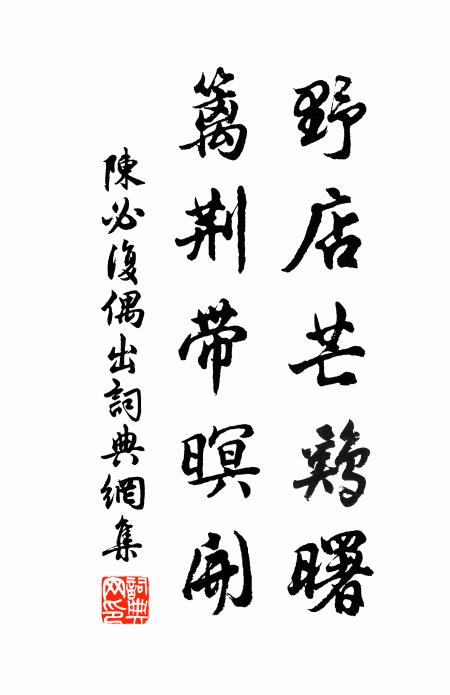 野店芒鷄曙
籬荆带暝開
陳必復偶出詞典網集
詞典网印